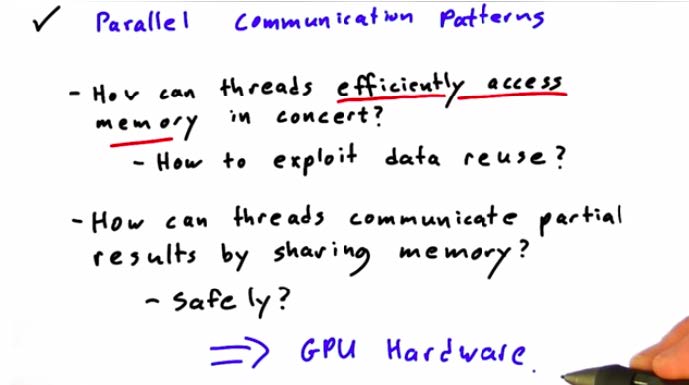 ✓ Parallel Communication Patterns
- How can threads efficiently access
memory in concert?
- How to exploit data reuse?
- How can threads communicate partial
results by sharing memory?
- Safely?
⇒ GPU Hardware.